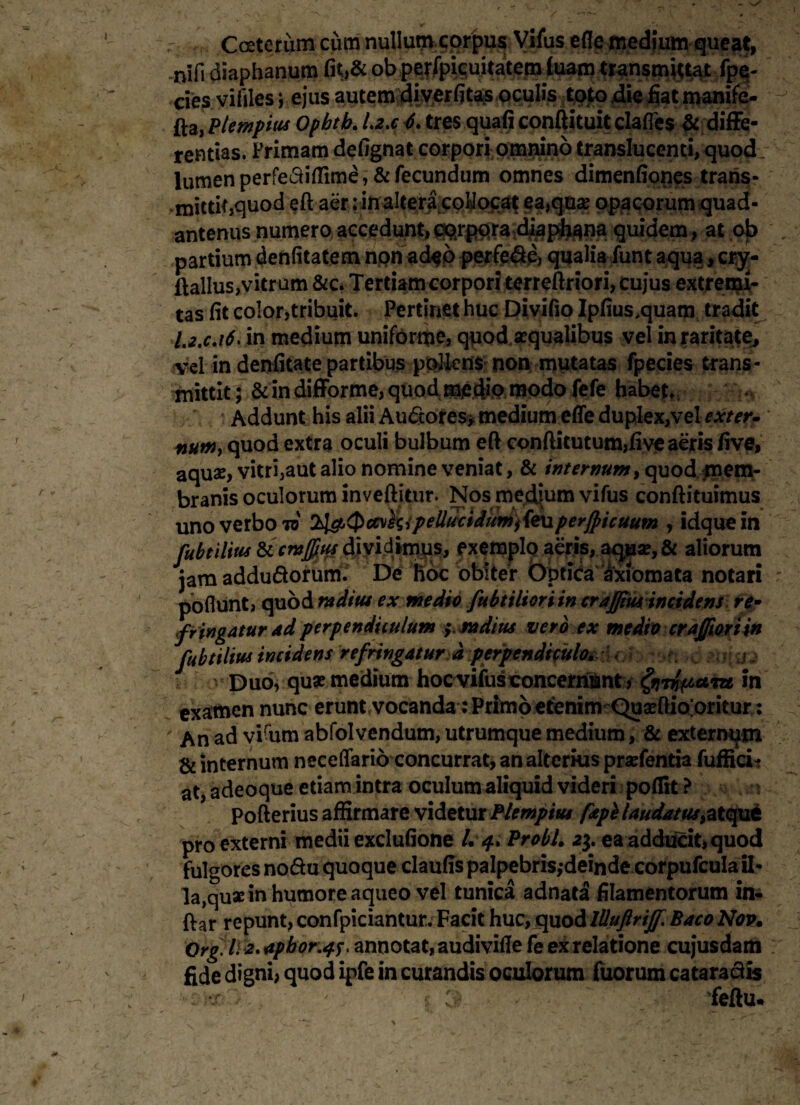 Cœterum cùm nullum corpus Visus esse medium queat,
nisi diaphanum sit,& ob perspicuitatem suam transmittat spe-
cies visiles; ejus autem diversitas oculis toto die fiat manife-
sta, Plempius Ophth. l.2.c 6. tres quasi constituit classes & diffe-
rentias. Primam designat corpori omnino translucenti, quod
lumen perfectissimè, & secundum omnes dimensiones trans-
mittit,quod est aër: in alterâ collocat ea,quæ opacorum quad-
antenus numero accedunt, corpora diaphana quidem, at ob
partium densitatem non adeò perfectè, qualia sunt aqua, cry-
stallus,vitrum &c. Tertiam corpori terrestriori, cujus extremi-
tas sit color,tribuit. Pertinet huc Divisio Ipsius,quam tradit
l.2.c.16. in medium uniforme, quod æqualibus vel in raritate,
vel in densitate partibus pollens non mutatas species trans-
mittit; & in difforme, quod medio modo sese habet.
Addunt his alii Auctores, medium esse duplex,vel exter-
num, quod extra oculi bulbum est constitutum,sive aëris sive,
aquæ, vitri,aut alio nomine veniat, & internum, quod mem-
branis oculorum investitur. Nos medium visus constituimus
uno verbo τὸ Διαφανὲς, pellucidum, seu perspicuum, idque in
subtilius & crassius dividimus, exemplo aëris, aquæ, & aliorum
jam adductorum. De hoc obiter Optica axiomata notari
possunt, quòd radius ex medio subtiliori in crassius incidens re-
fringatur ad perpendiculum ; radius verò ex medio crassiori in
subtilius incidens refringatur à perpendiculo.
Duo, quæ medium hoc visus concernunt, ζητήματα in
examen nunc erunt vocanda: Primò etenim Quæstio oritur:
An ad visum absolvendum, utrumque medium, & externum
& internum necessariò concurrat, an alterius præsentia suffici-
at, adeoque etiam intra oculum aliquid videri possit ?
Posterius affirmare videtur Plempius sæpè laudatus,atque
pro externi medii exclusione l. 4. Probl. 23. ea adducit, quod
fulgores noctu quoque clausis palpebris;deinde corpuscula il-
la,quæ in humore aqueo vel tunicâ adnatâ filamentorum in-
star repunt, conspiciantur. Facit huc, quod Illustriss. Baco Nov.
Org. l. 2. aphor.45. annotat, audivisse se ex relatione cujusdam
fide digni, quod ipse in curandis oculorum suorum cataractis
festu-